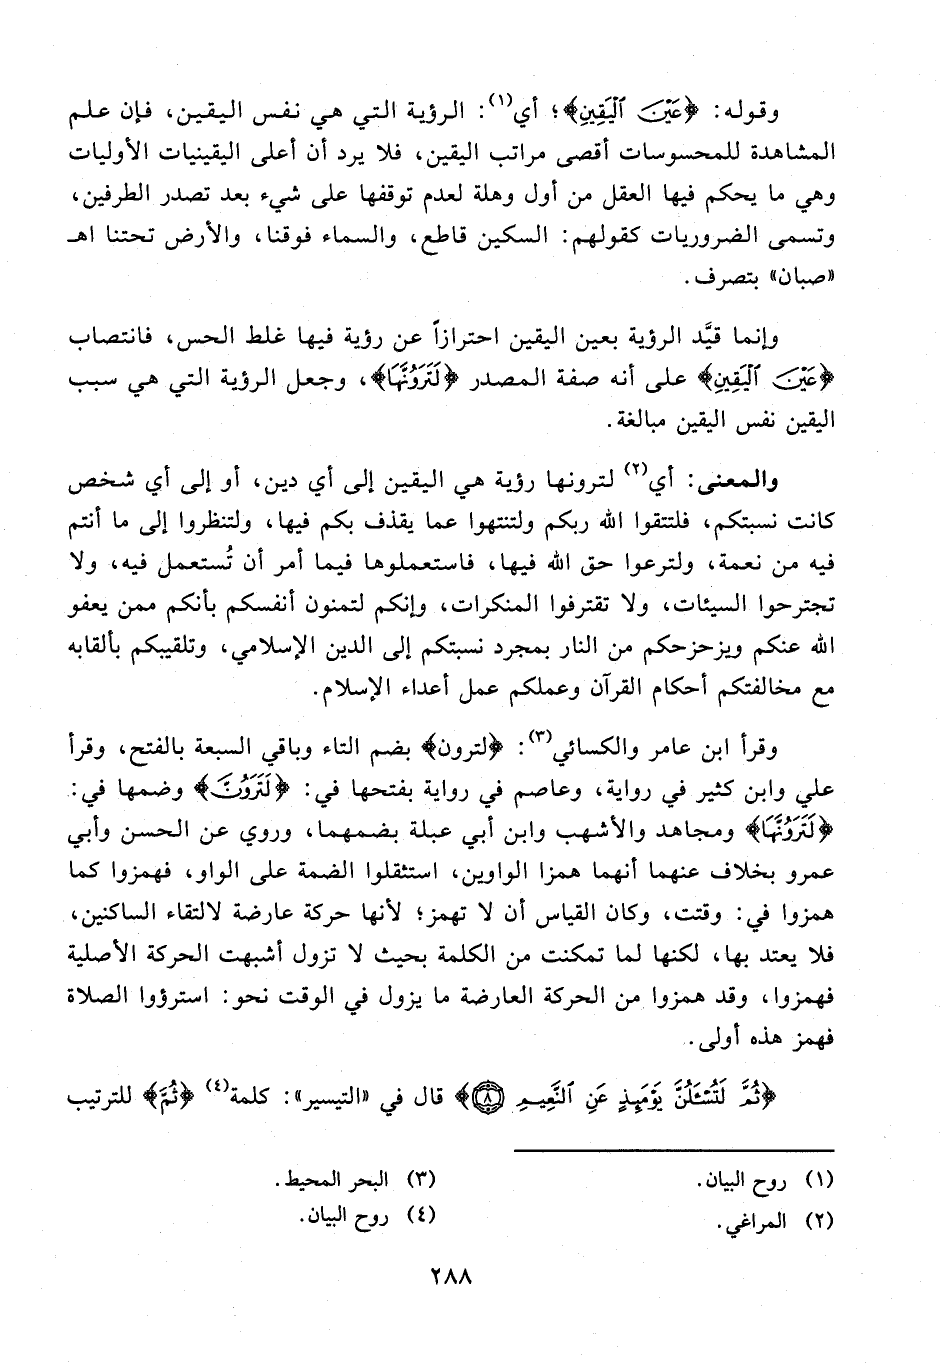 وقوله: ﴿عَيْنَ ٱلْيَقِينِ﴾؛ أي(١): الرؤية التي هي نفس اليقين، فإن علم
المشاهدة للمحسوسات أقصى مراتب اليقين، فلا يرد أن أعلى اليقينيات الأوليات
وهي ما يحكم فيها العقل من أول وهلة لعدم توقفها على شيء بعد تصدر الطرفين،
وتسمى الضروريات كقولهم: السكين قاطع، والسماء فوقنا، والأرض تحتنا اهـ
«صبان» بتصرف.
وإنما قيَّد الرؤية بعين اليقين احترازاً عن رؤية فيها غلط الحس، فانتصاب
﴿عَيْنَ ٱلْيَقِينِ﴾ على أنه صفة المصدر ﴿لَتَرَوُنَّهَا﴾، وجعل الرؤية التي هي سبب
اليقين نفس اليقين مبالغة.
والمعنى: أي(٢) لترونها رؤية هي اليقين إلى أي دين، أو إلى أي شخص
كانت نسبتكم، فلتتقوا الله ربكم ولتنتهوا عما يقذف بكم فيها، ولتنظروا إلى ما أنتم
فيه من نعمة، ولترعوا حق الله فيها، فاستعملوها فيما أمر أن تُستعمل فيه، ولا
تجترحوا السيئات، ولا تقترفوا المنكرات، وإنكم لتمنون أنفسكم بأنكم ممن يعفو
الله عنكم ويزحزحكم من النار بمجرد نسبتكم إلى الدين الإسلامي، وتلقيبكم بألقابه
مع مخالفتكم أحكام القرآن وعملكم عمل أعداء الإسلام.
وقرأ ابن عامر والكسائي(٣): ﴿لترون﴾ بضم التاء وباقي السبعة بالفتح، وقرأ
علي وابن كثير في رواية، وعاصم في رواية بفتحها في: ﴿لَتَرَوُنَّ﴾ وضمها في:
﴿لَتَرَوُنَّهَا﴾ ومجاهد والأشهب وابن أبي عبلة بضمهما، وروي عن الحسن وأبي
عمرو بخلاف عنهما أنهما همزا الواوين، استثقلوا الضمة على الواو، فهمزوا كما
همزوا في: وقتت، وكان القياس أن لا تهمز؛ لأنها حركة عارضة لالتقاء الساكنين،
فلا يعتد بها، لكنها لما تمكنت من الكلمة بحيث لا تزول أشبهت الحركة الأصلية
فهمزوا، وقد همزوا من الحركة العارضة ما يزول في الوقت نحو: استرؤوا الصلاة
فهمز هذه أولى.
﴿ثُمَّ لَتُسْـَٔلُنَّ يَوْمَئِذٍ عَنِ ٱلنَّعِيمِ ٨﴾ قال في «التيسير»: كلمة(٤) ﴿ثُمَّ﴾ للترتيب
(١) روح البيان.
(٢) المراغي.
(٣) البحر المحيط.
(٤) روح البيان.
٢٨٨